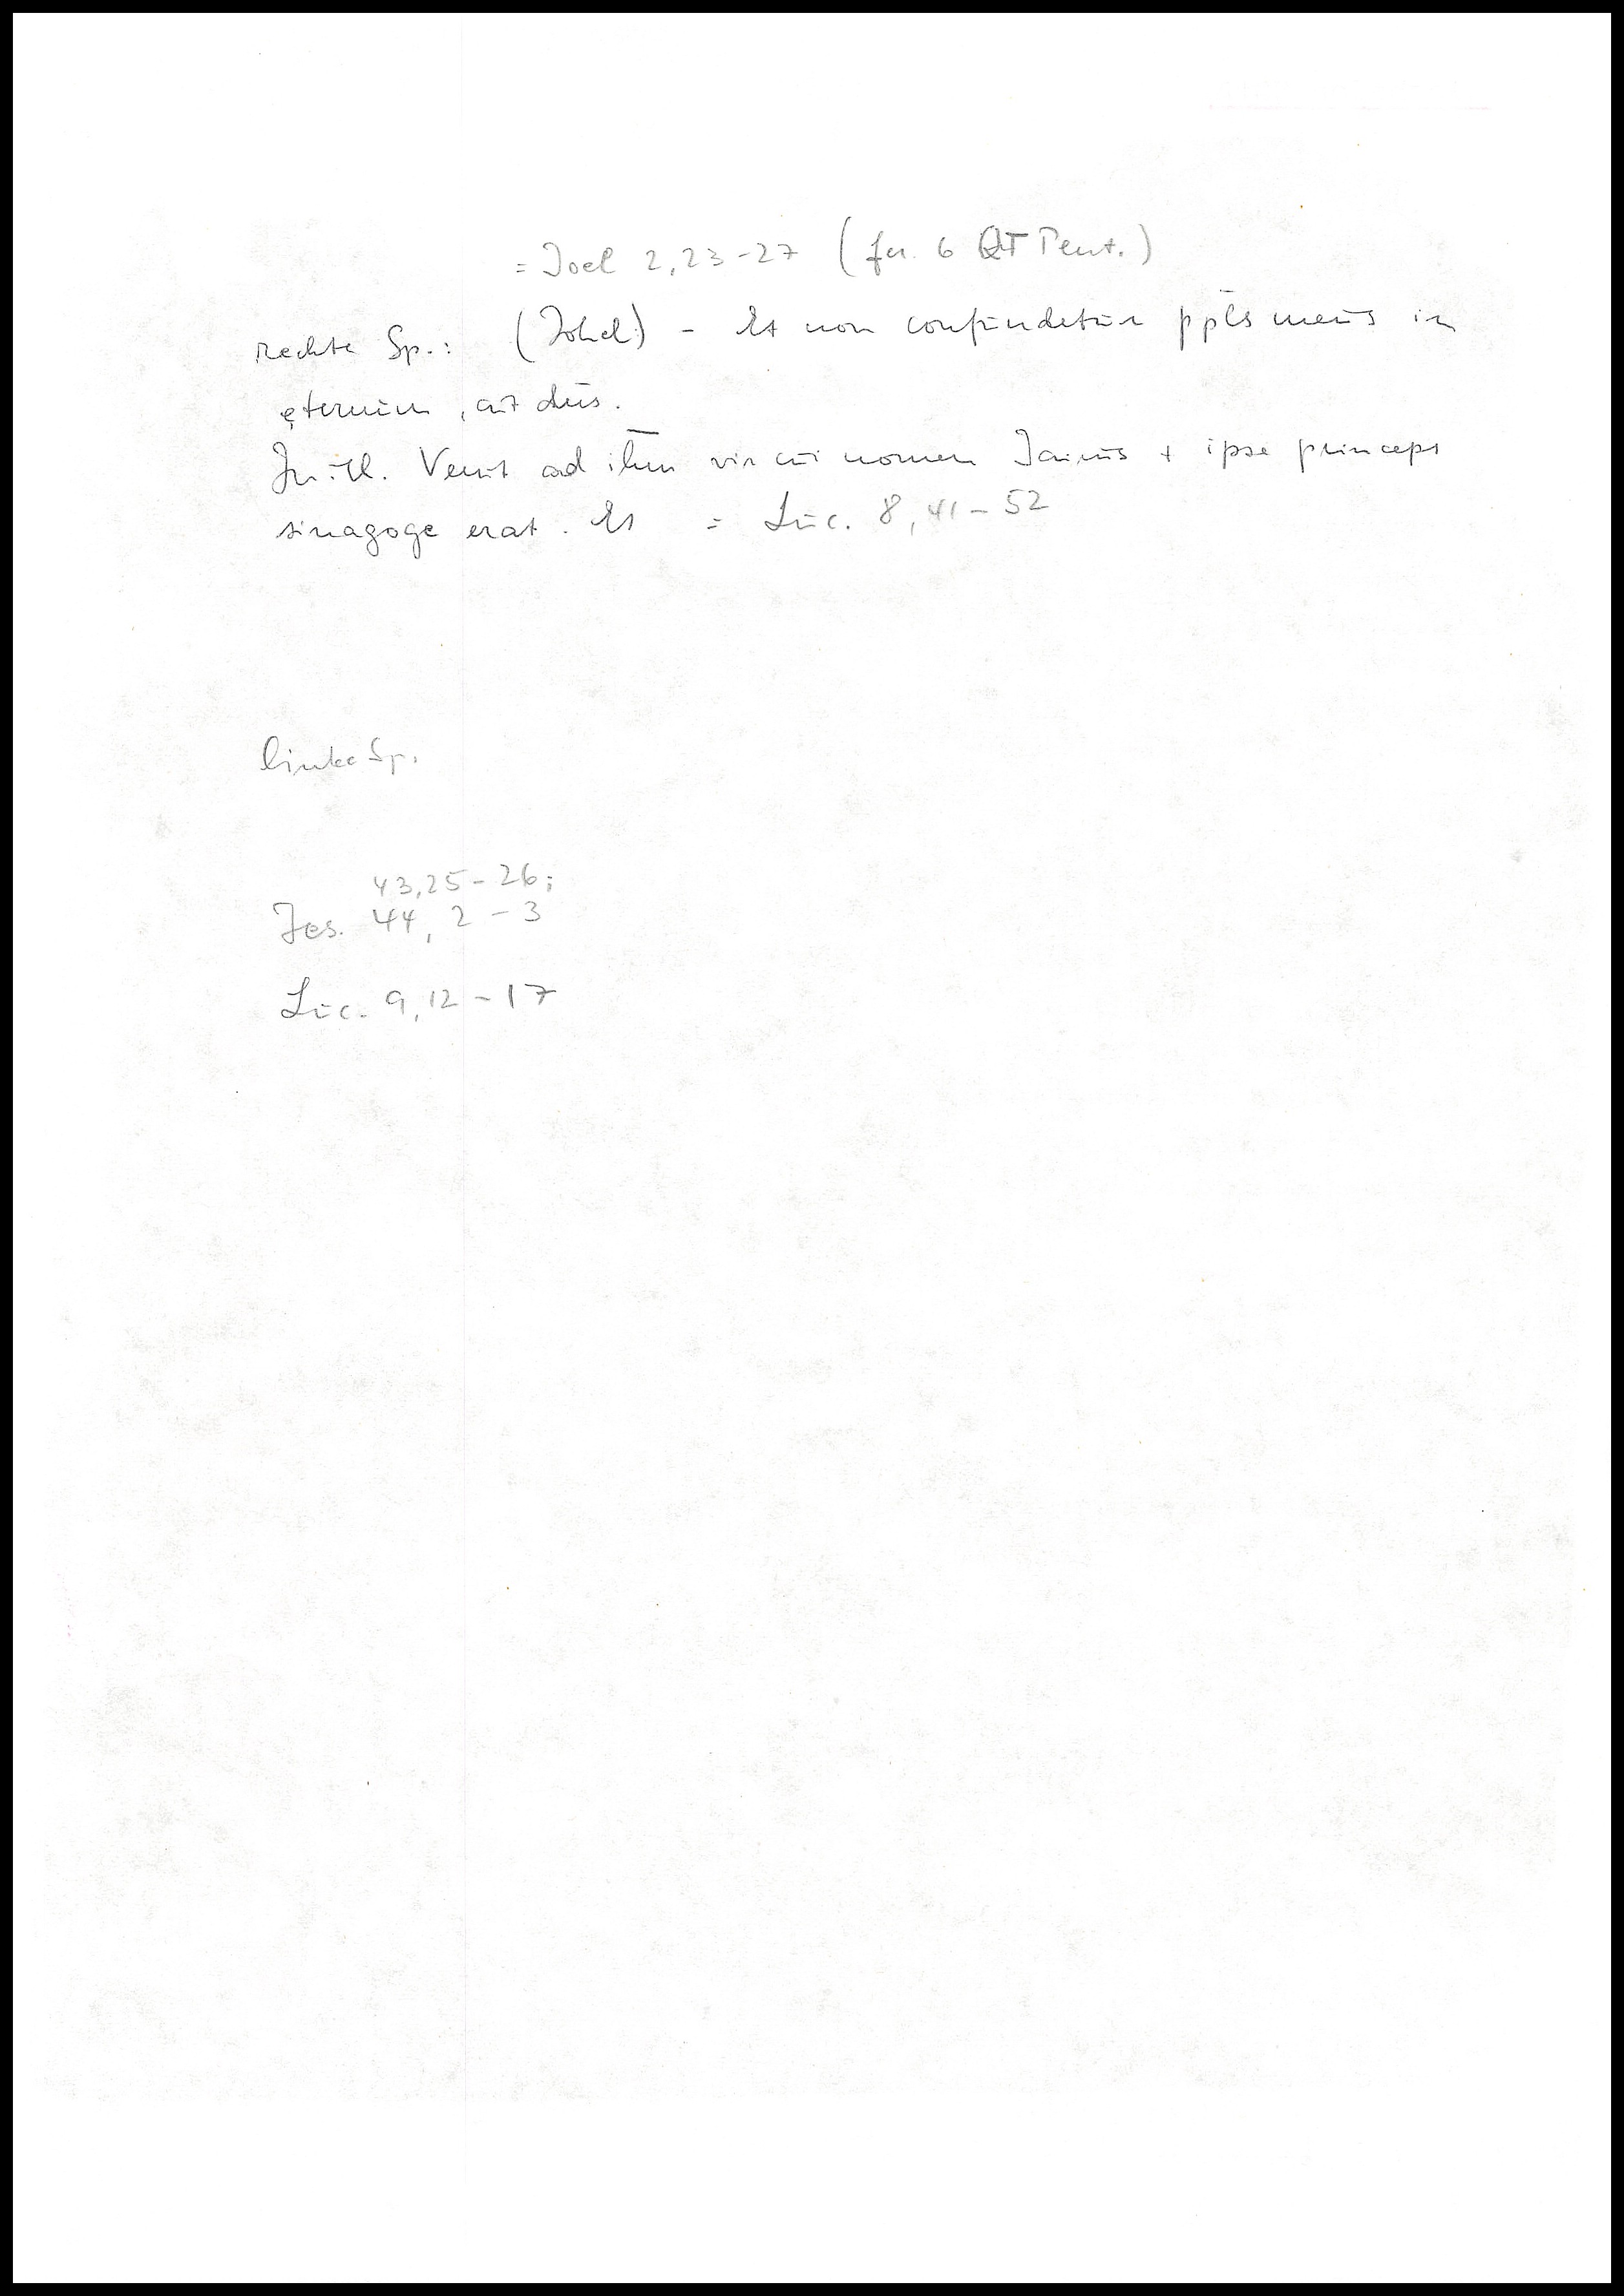 = Joel 2,23-27 (fer. 6 QT Pent.)
rechte Sp.: (Johel) - Et non confundetur ppls meus in
ęternum, ait dns.
In ill. Venit ad ihm vir cui nomen Jairus + ipse princeps
sinagoge erat. Et = Luc. 8,41-52
linke Sp.
43,25-26;
Jes. 44, 2-3
Luc. 9,12-17